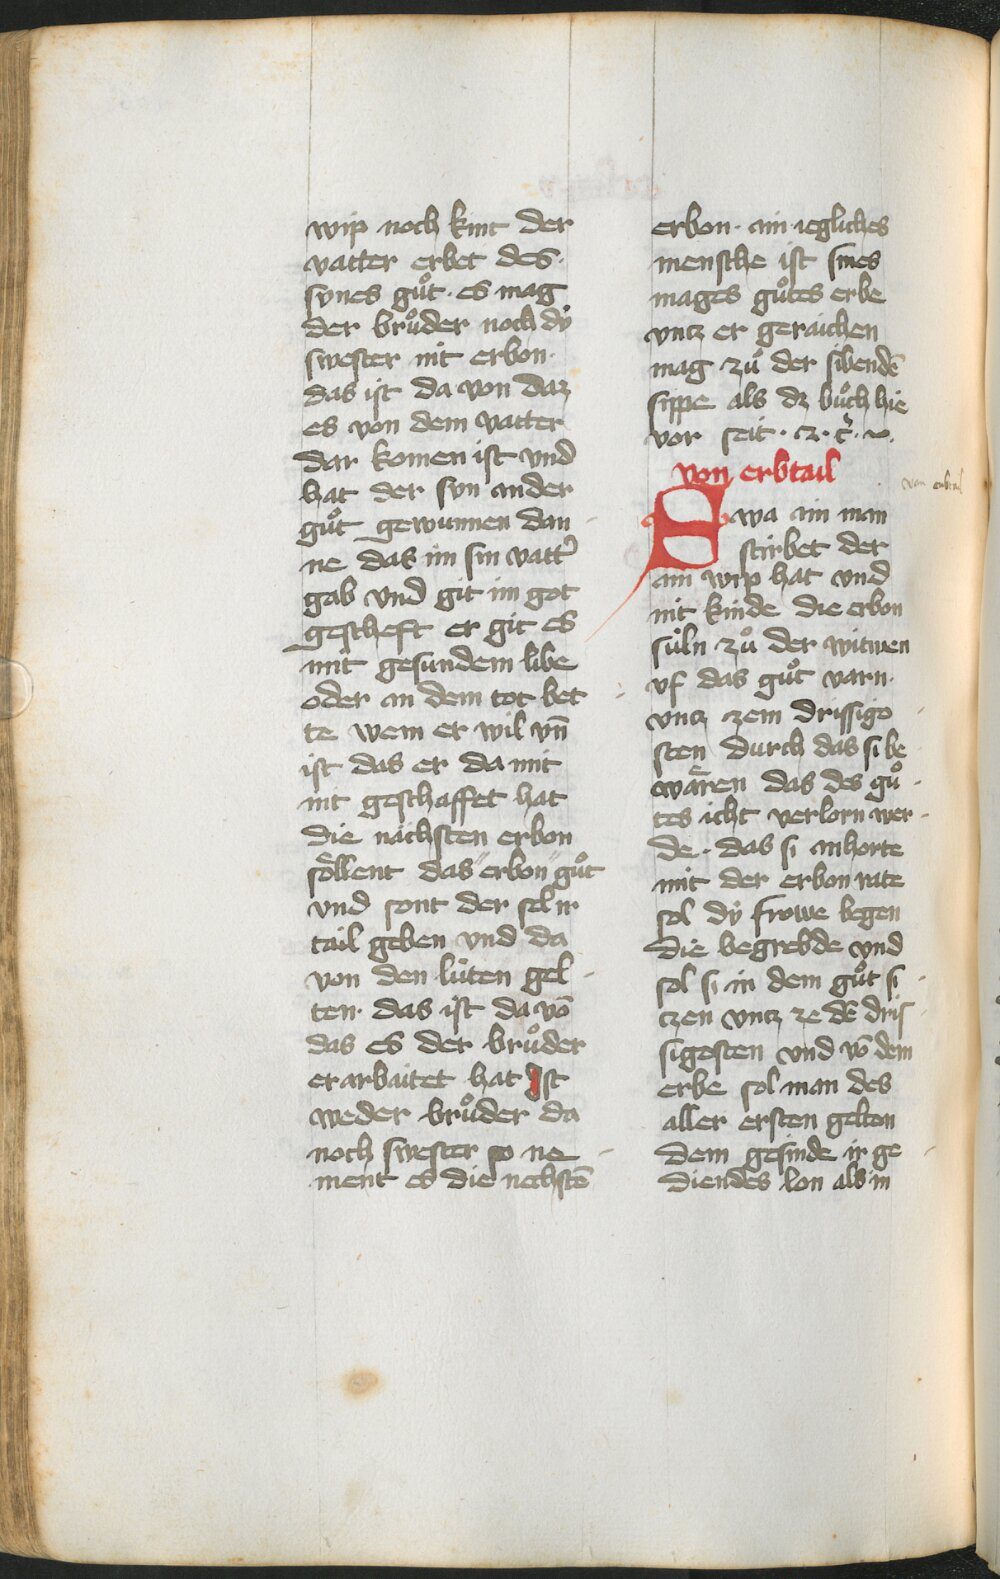 wip noch kint der
vatter erbet des·
synes guͦt· es mag
der bruͦder noch dy
swester nit erbon·
das ist da von daz
es von dem vatter
dar komen ist vnd
hat der syn ander
guͦt gewunnen dan
ne das im sin vatt᾽
gab vnd git im got
gescheft er git es
mit gesundem libe
oder an dem tot bet
te wem er wil vn̄
ist das er da mit
nit geschaffet hat
die nächsten erbon
soͤllent das "erbon" guͦt
vnd sont der sel ir
tail geben vnd da
von den luͤten gel
ten· das ist da vō
das es der bruͦder
erarbaitet hat Ist
weder bruͦder da
noch swester so ne
ment es die nechstē
erbon· ain iegliches
mensche ist sines
mages guͦtes erbe
vntz er geraichen
mag zuͦ der sibendē
sippe als dz buͦch hie
vor seit· ꝛ· c̄·
von erbtail
von erbtail
Swa ain man
stirbet der
ain wip hat vnd
nit kinde die erbon
suͤln zuͦ der witwen
vf das guͦt varn·
vntz zem drissigo
sten durch das si be
waͤren das des guͦ
tes icht verlorn wer
de· das si anhorte
mit der erbon rate
sol dy frowe begen
die begrebde vnd
sol si in dem guͦt si
czen vntz ze dē dris
sigesten vnd vō dem
erbe sol man des
aller ersten gelton
dem gesinde ir ge
diendes lon als in